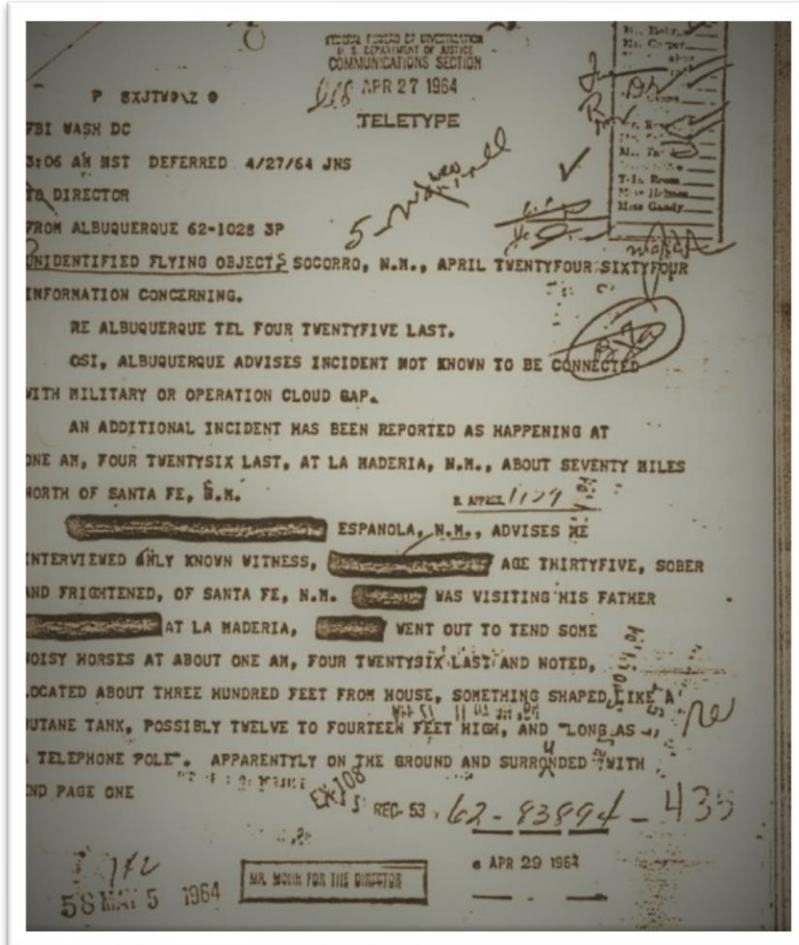 FEDERAL BUREAU OF INVESTIGATION
U. S. DEPARTMENT OF JUSTICE
COMMUNICATIONS SECTION
APR 27 1964
TELETYPE
FBI WASH DC
3:06 AM MST DEFERRED 4/27/64 JNS
TO DIRECTOR
FROM ALBUQUERQUE 62-1028 3P
UNIDENTIFIED FLYING OBJECTS SOCORRO, N.M., APRIL TWENTYFOUR SIXTYFOUR
INFORMATION CONCERNING.
RE ALBUQUERQUE TEL FOUR TWENTYFIVE LAST.
OSI, ALBUQUERQUE ADVISES INCIDENT NOT KNOWN TO BE CONNECTED
WITH MILITARY OR OPERATION CLOUD GAP.
AN ADDITIONAL INCIDENT HAS BEEN REPORTED AS HAPPENING AT
ONE AM, FOUR TWENTYSIX LAST, AT LA MADERIA, N.M., ABOUT SEVENTY MILES
NORTH OF SANTA FE, N.M.
ESPANOLA, N.M., ADVISES HE
INTERVIEWED ONLY KNOWN WITNESS, AGE THIRTYFIVE, SOBER
AND FRIGHTENED, OF SANTA FE, N.M. WAS VISITING HIS FATHER
AT LA MADERIA, WENT OUT TO TEND SOME
NOISY HORSES AT ABOUT ONE AM, FOUR TWENTYSIX LAST AND NOTED,
LOCATED ABOUT THREE HUNDRED FEET FROM HOUSE, SOMETHING SHAPED LIKE A
BUTANE TANK, POSSIBLY TWELVE TO FOURTEEN FEET HIGH, AND "LONG AS
TELEPHONE POLE". APPARENTLY ON THE GROUND AND SURRONDED WITH
END PAGE ONE
EX-108
REC-53 62-83894-435
6 APR 29 1964
MR. MOHR FOR THE DIRECTOR
58 MAY 5 1964
Tele. Room
Miss Holmes
Miss Gandy